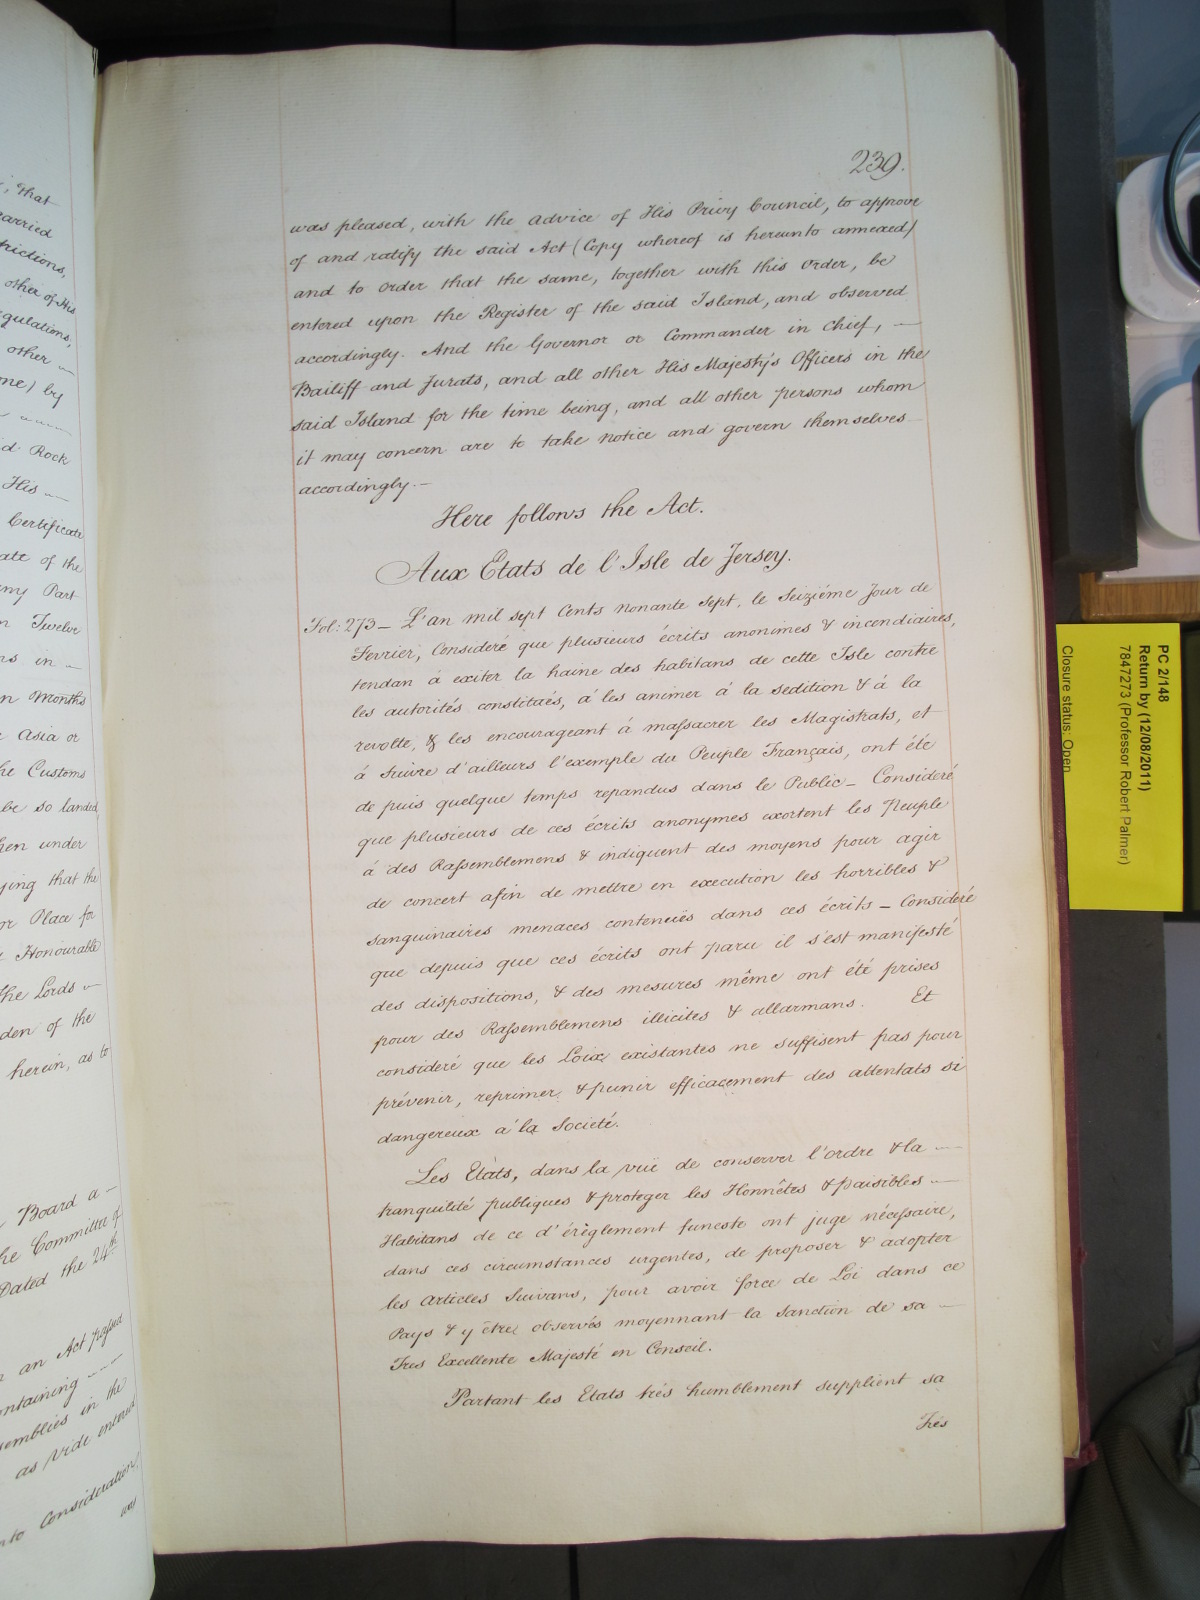 239.
was pleased, with the advice of His Privy Council, to approve
of and ratify the said Act (Copy whereof is hereunto annexed)
and to order that the same, together with this Order, be
entered upon the Register of the said Island, and observed
accordingly. And the Governor or Commander in Chief, —
Bailiff and Jurats, and all other His Majesty's Officers in the
said Island for the time being, and all other persons whom
it may concern are to take notice and govern themselves
accordingly.—
Here follows the Act.
Aux Etats de l'Isle de Jersey.
Fol: 273 — L'an mil sept Cents nonante Sept, le Seiziéme Jour de
Fevrier, Consideré que plusieurs écrits anonimes & incendiaires,
tendan á exciter la haine des habitans de cette Isle contre
les autorités constitués, á les animer á la sedition & á la
revolte, & les encourageant á massacrer les Magistrats, et
á Suivre d'ailleurs l'exemple du Peuple Français, ont été
de puis quelque temps repandus dans le Public — Consideré
que plusieurs de ces écrits anonymes exortent les Peuple
á des Rassemblemens & indiquent des moyens pour agir
de concert afin de mettre en execution les horribles &
sanguinaires menaces contenües dans ces écrits — Consideré
que depuis que ces écrits ont paru il s'est manifesté
des dispositions, & des mesures même ont été prises
pour des Rassemblemens illicites & allarmans. Et
consideré que les Loix existantes ne suffisent pas pour
prévenir, reprimer & punir efficacement des attentats si
dangereux a' la Societé.
Les Etats, dans la vuë de conserver l'ordre & la —
tranquilité publiques & proteger les Honnêtes & paisibles —
Habitans de ce d'éréglement funeste ont juge nécessaire,
dans ces circumstances urgentes, de proposer & adopter
les Articles Suivans, pour avoir force de Loi dans ce
Pays & y être observés moyennant la Sanction de sa —
Tres Excellente Majesté en Conseil.
Partant les Etats trés humblement supplient sa
Trés
, that
carried
other of His
gulations,
other —
me) by
d Rock
His —
Certificate
ate of the
ny Part
n Twelve
ns in —
n Months
r Asia or
he Customs
be so landed
hen under
ying that the
or Place for
Honourable
The Lords
den of the
herein, as to
Board a —
he Committee of
Dated the 24th
an Act passed
ntaining —
semblies in the
as vide entered
nto Consideration,
was
PC 2/148
Return by (12/08/2011)
7847273 (Professor Robert Palmer)
Closure status: Open